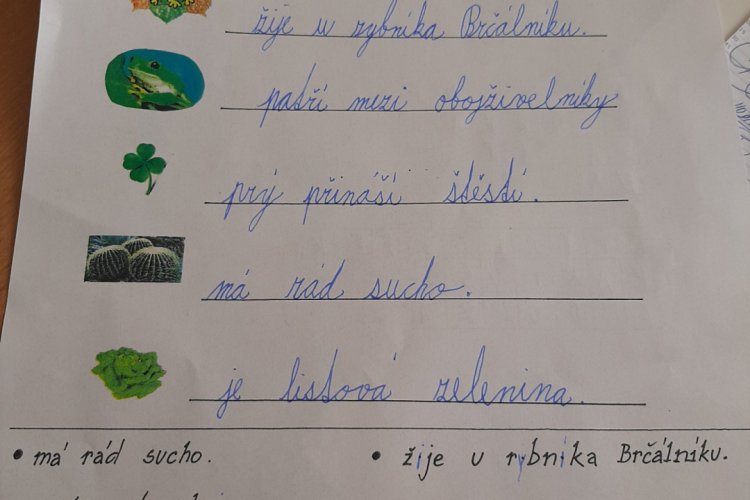 žije u rybníka Brčálníku.
patří mezi obojživelníky
prý přináší štěstí.
má rád sucho.
je listová zelenina.
• má rád sucho.
• žije u rybníka Brčálníku.